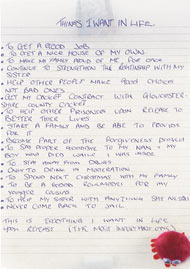 THINGS I WANT IN LIFE
• TO GET A GOOD JOB
• TO GET A NICE HOUSE OF MY OWN
• TO MAKE MY FAMILY PROUD OF ME, FOR ONCE
• CONTINUE TO STRENGTHEN THE RELATIONSHIP WITH MY
SISTER
• HELP OTHER PEOPLE MAKE GOOD CHOICES
NOT BAD ONES
• GET MY CRICKET CONTRACT WITH GLOUCESTER-
SHIRE COUNTY CRICKET
• TO HELP OTHER PRISONERS UPON RELEASE TO
BETTER THERE LIVES
• START A FAMILY AND BE ABLE TO PROVIDE
FOR IT
• BECOME PART OF THE FORGIVENESS PROJECT
• TO SAY PROPER GOODBYE TO MY NAN + MY
BOY WHO DIED WHILE I WAS INSIDE
• TO STAY AWAY FROM DRUGS
• ONLY TO DRINK IN MODERATION
• TO SPEND NEXT CHRISTMAS WITH MY FAMILY
• TO BE A GOOD ROLEMODEL FOR MY
YOUNGER COUSINS
• TO HELP MY SISTER WITH ANYTHING SHE NEEDS
• NEVER COME BACK TO JAIL
THIS IS EVERYTHING I WANT IN LIFE
UPON RELEASE (THE MOST IMPORTANT ONES)